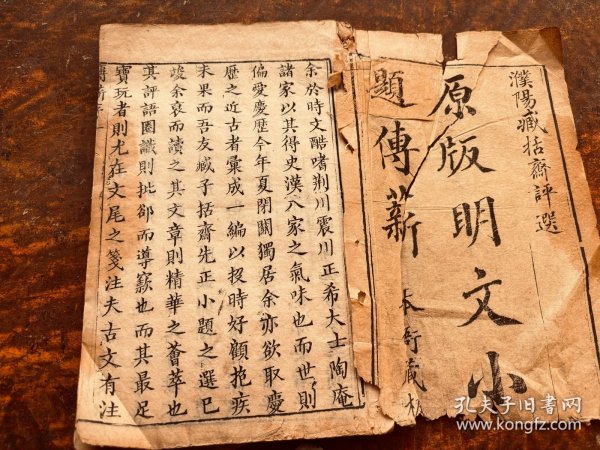 濮陽臧括齋評選
原版明文小
題傳薪
本衙藏板
余於時文酷嗜荆川震川正希大士陶庵
諸家以其得史漢八家之氣味也而世則
偏愛慶歷今年夏閉關獨居余亦欲取慶
歷之近古者彙成一編以投時好顧抱疾
未果而吾友臧子括齋先正小題之選已
竣余衷而讀之其文章則精華之薈萃也
其評語圈識則批郤而導窾也而其最足
寶玩者則尤在文尾之箋注夫古文有注
孔夫子旧书网
www.kongfz.com